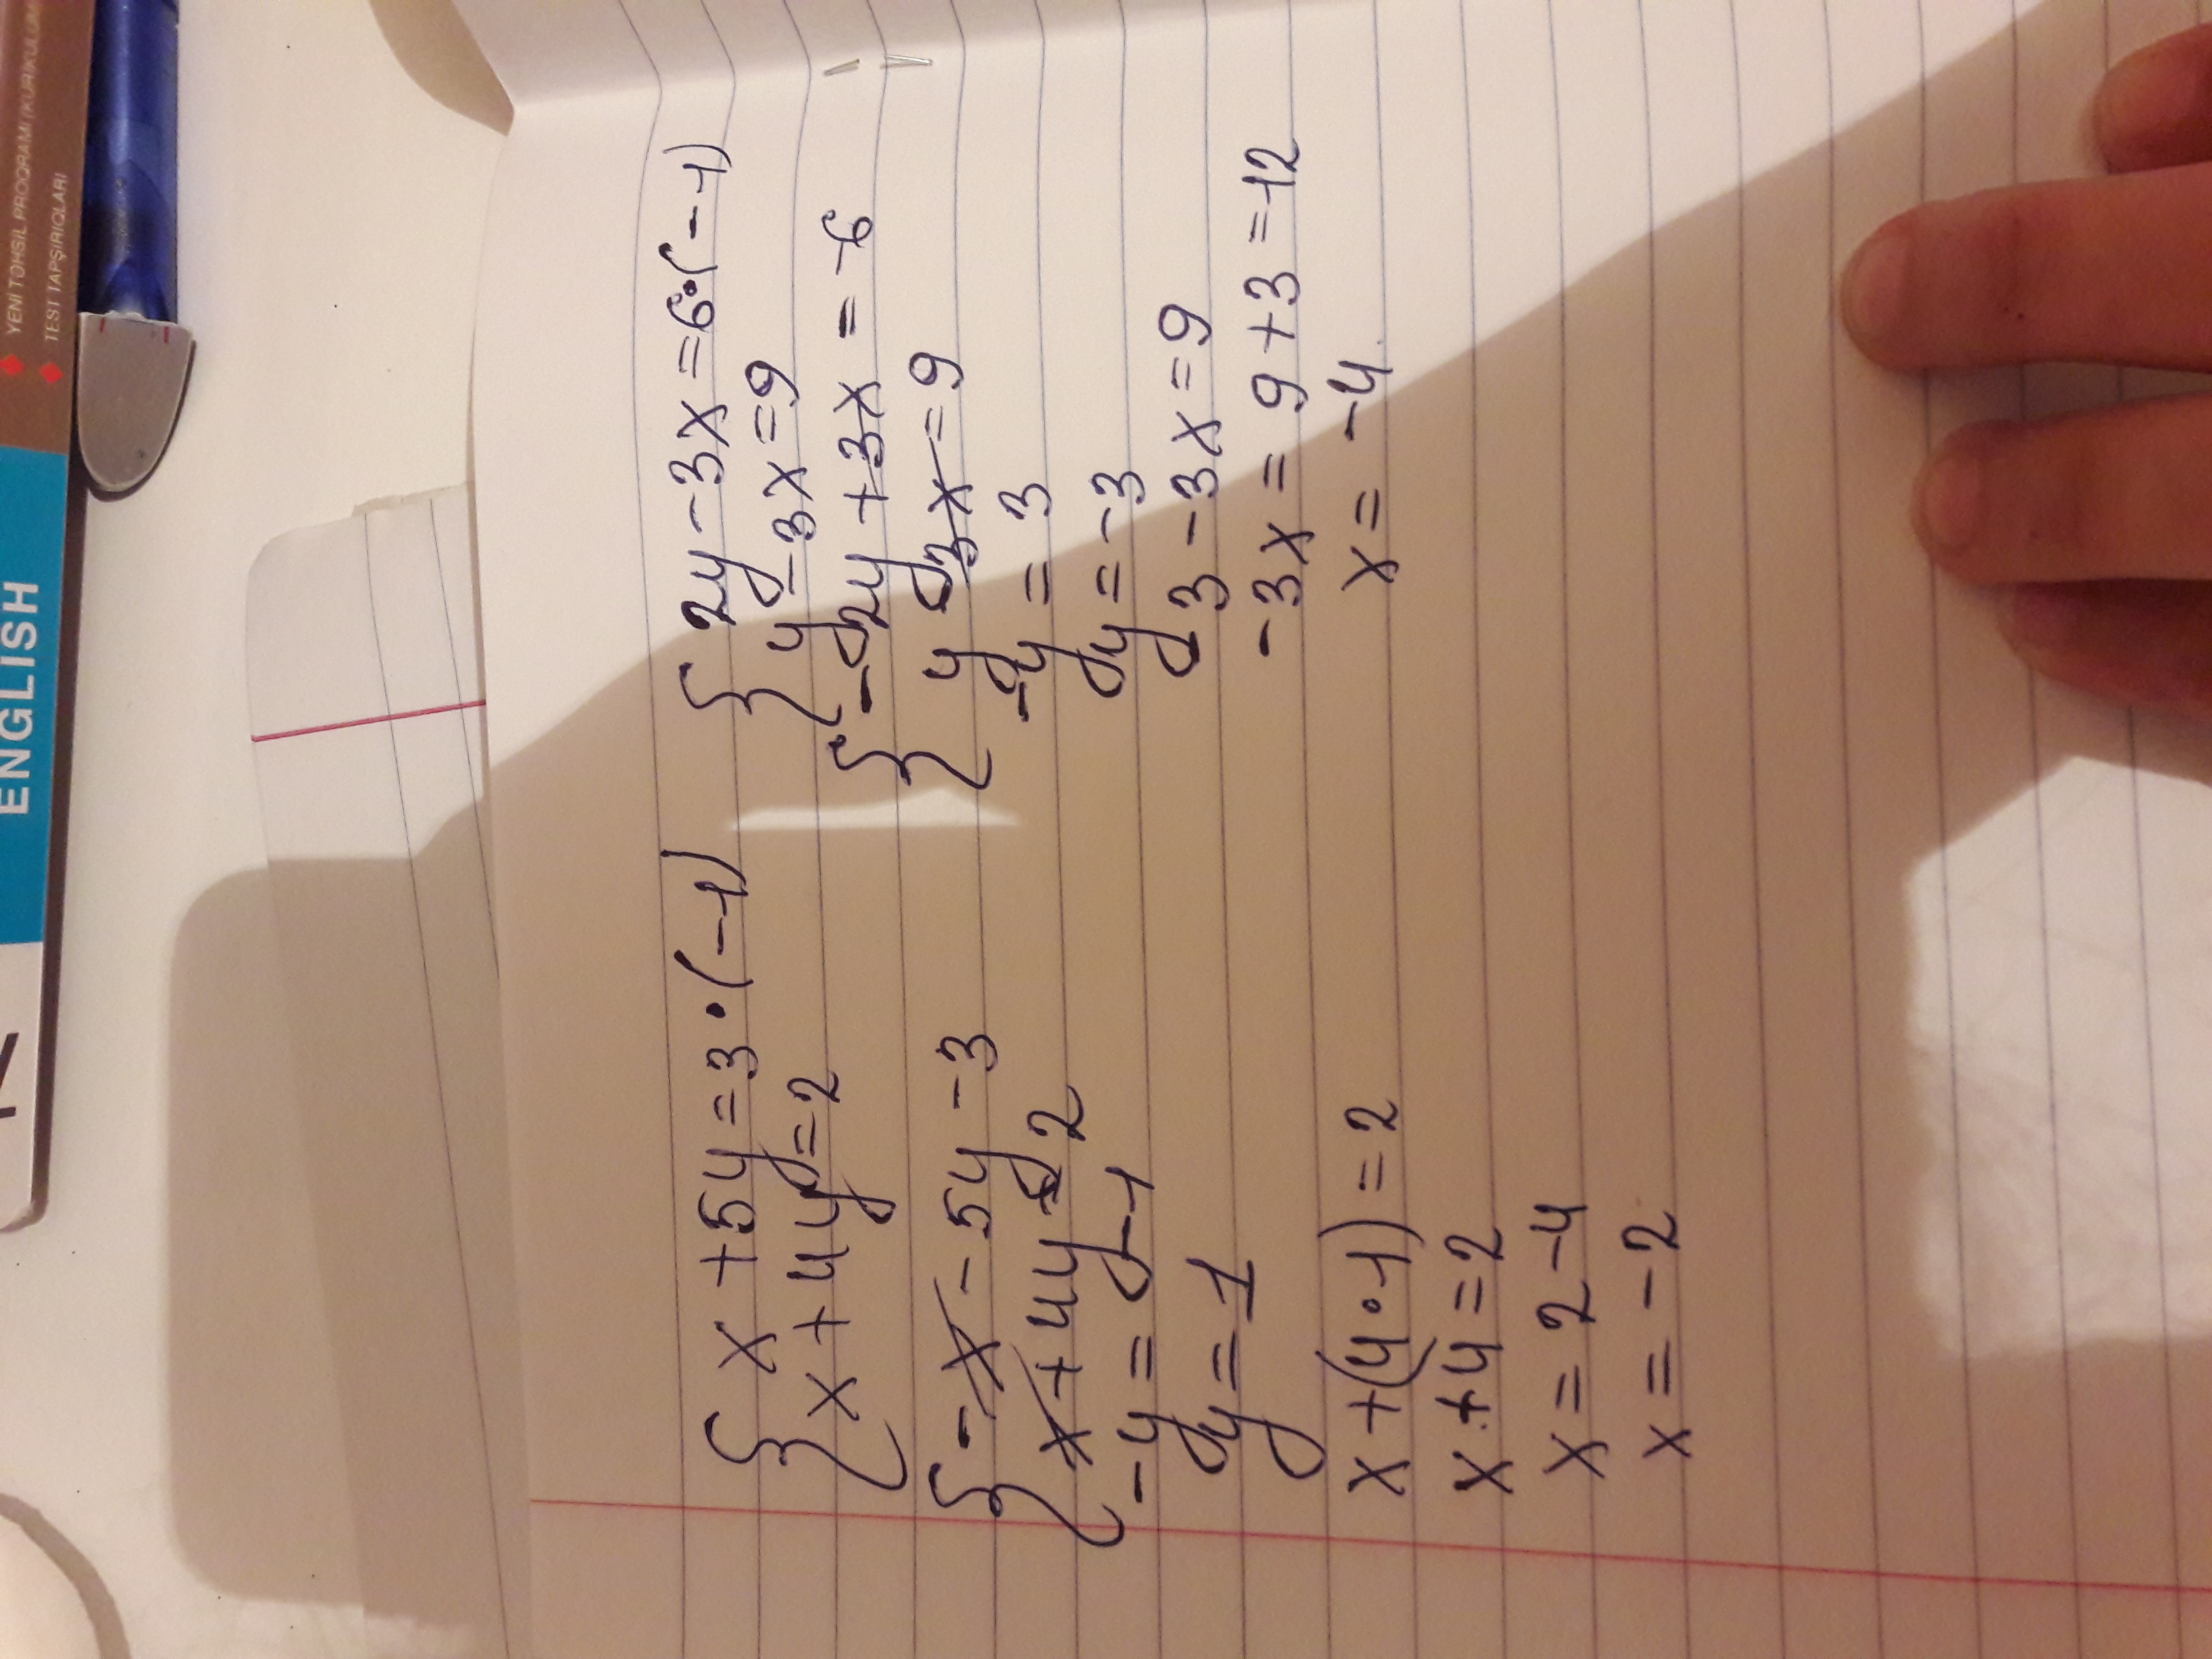 YENİ TƏHSİL PROQRAMI (KURİKULUM
TEST TAPŞIRIQLARI
ENGLISH
{ x + 5y = 3 • (-1)
x + 4y = 2
{ -x - 5y -3
x + 4y = 2
-y = -1
y = 1
x + (4 • 1) = 2
x + 4 = 2
x = 2 - 4
x = -2
{ 2y - 3x = 6 • (-1)
y - 3x = 9
{ -2y + 3x = -6
y - 3x = 9
-y = 3
y = -3
-3 - 3x = 9
-3x = 9 + 3 = 12
x = -4